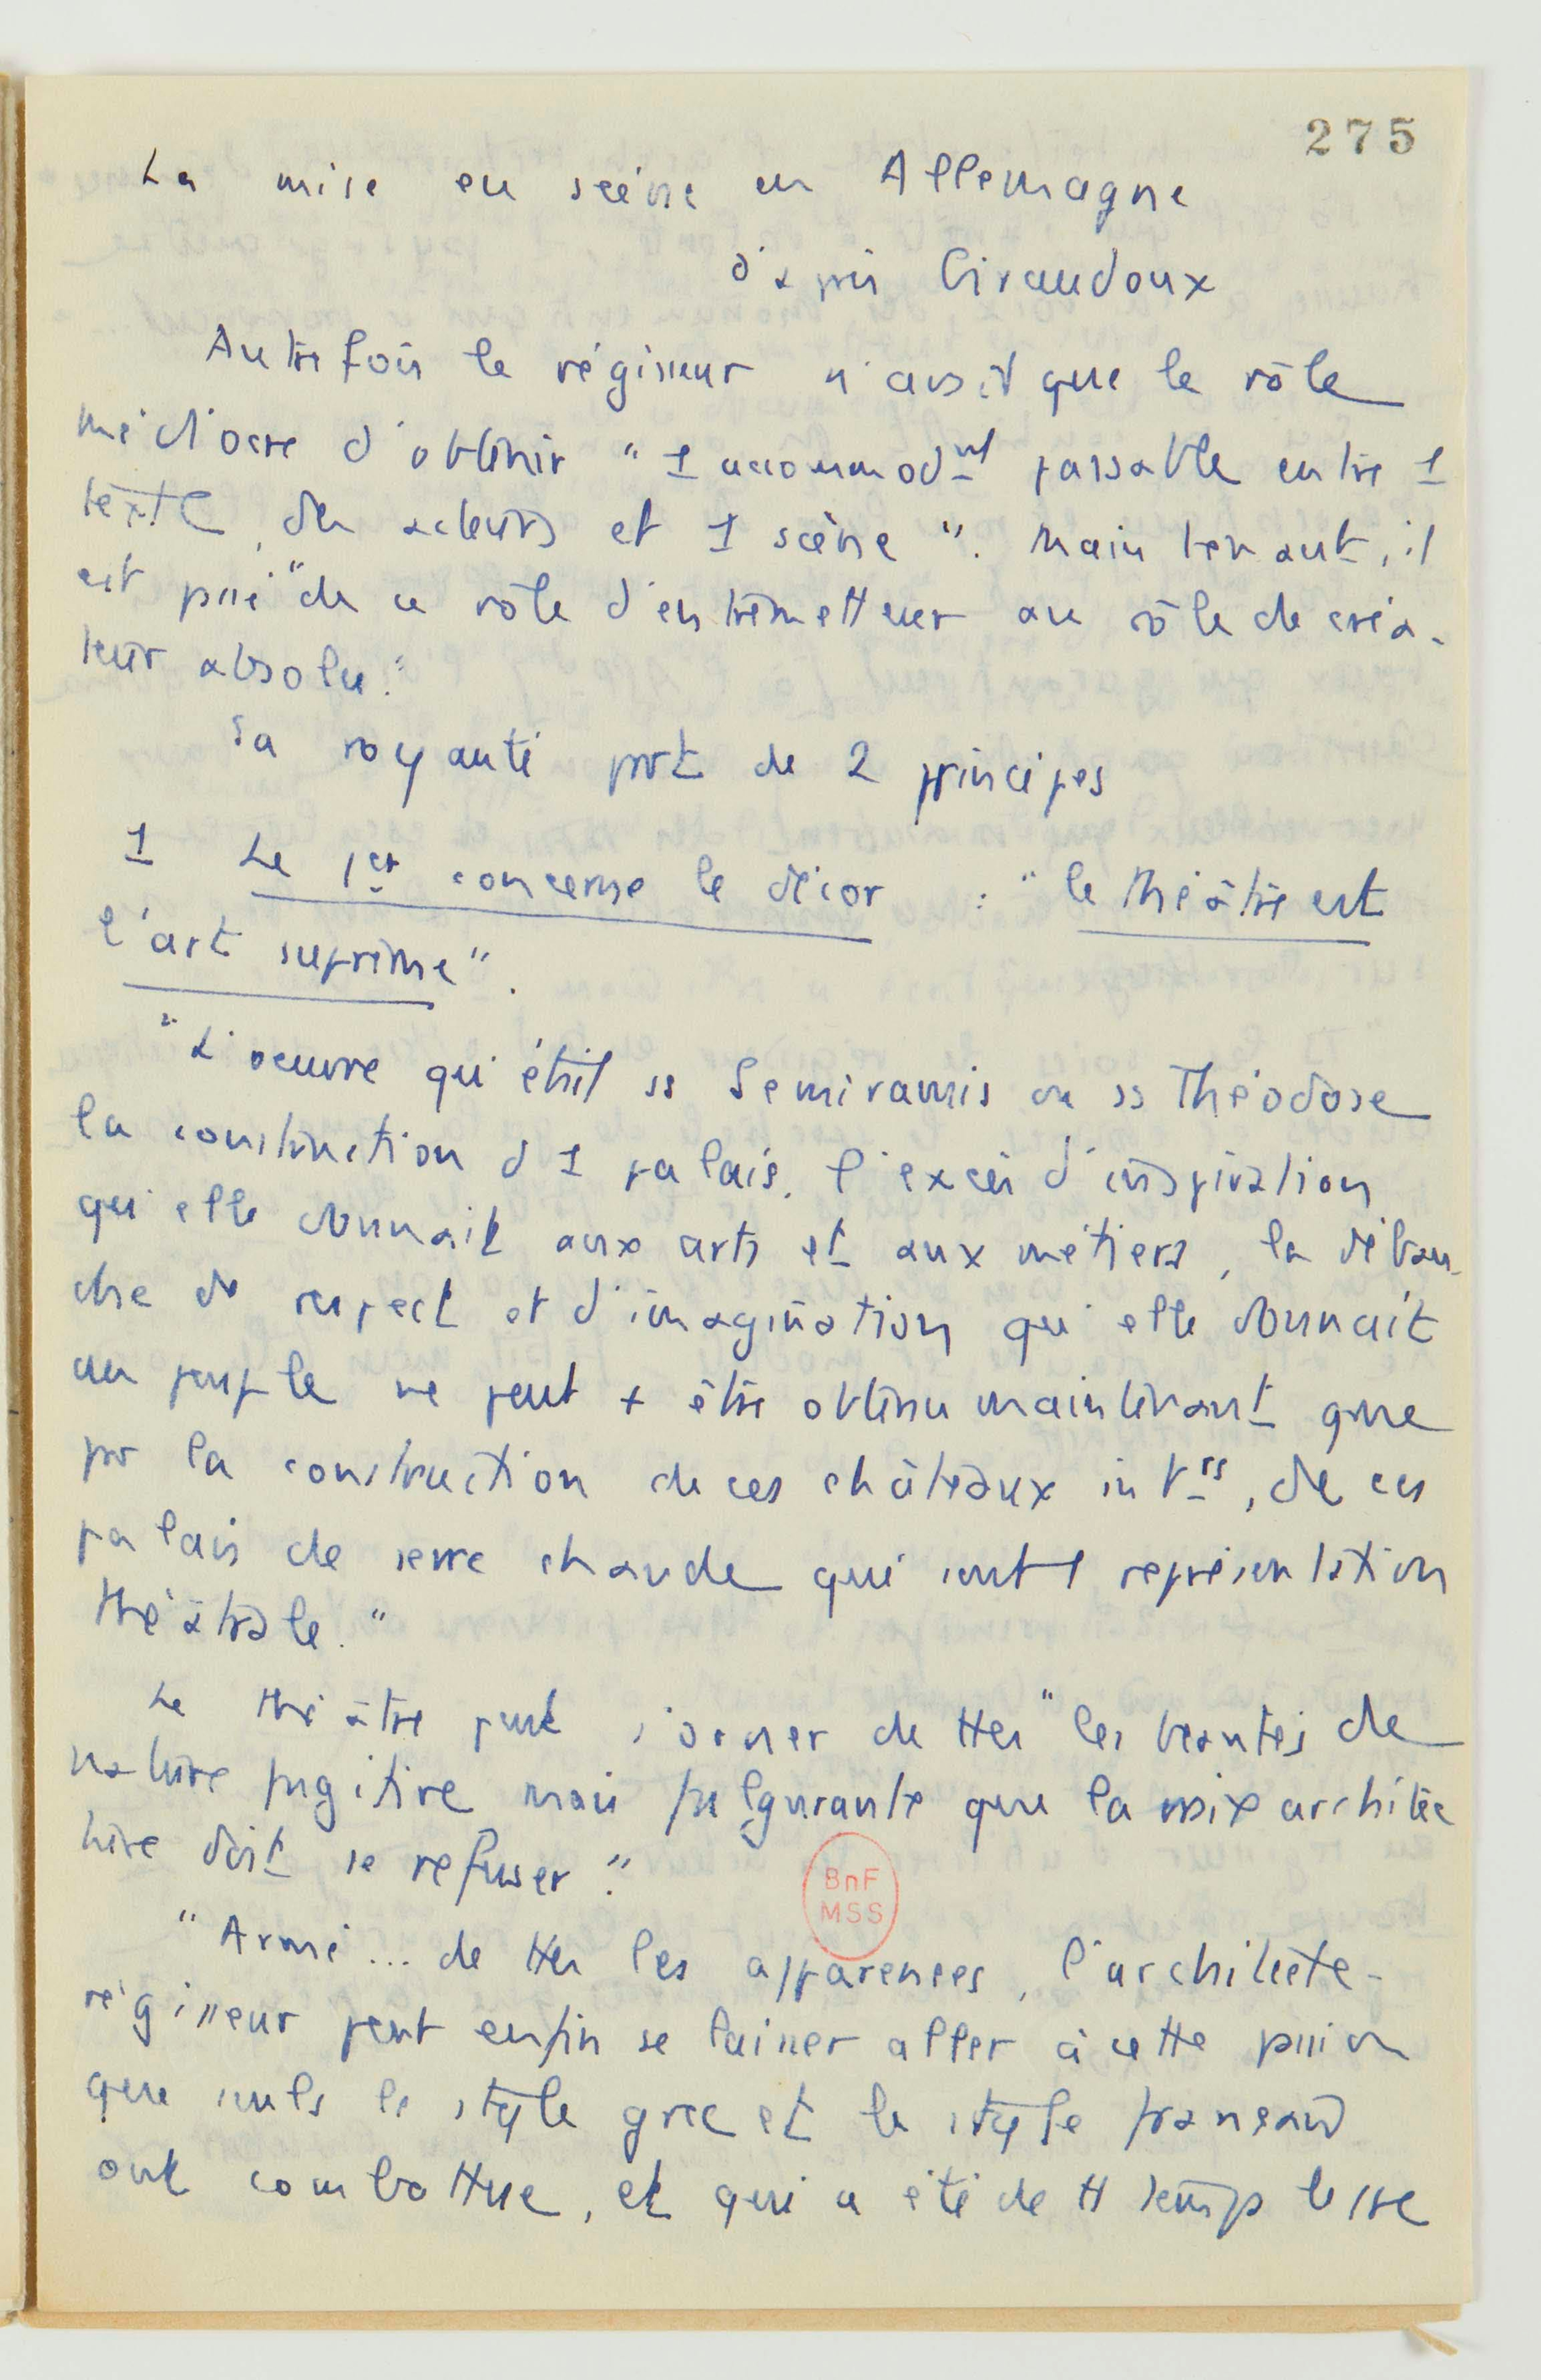 275
La mise en scène en Allemagne
d'après Giraudoux
Autrefois le régisseur n'avait que le rôle
médiocre d'obtenir "1 accommodnt passable entre 1
texte, des acteurs et 1 scène". Maintenant, il
est passé "de ce rôle d'entremetteur au rôle de créa-
teur absolu."
Sa royauté part de 2 principes
1 Le 1er concerne le décor : "le théâtre est
l'art suprême".
"L'oeuvre qu'était ss Semiramis ou ss Théodose
la construction d'1 palais, l'excès d'inspiration
qu'elle donnait aux arts et aux métiers, la débau-
che de respect et d'imagination qu'elle donnait
au peuple ne peut + être obtenu maintenant que
par la construction de ces châteaux intrs, de ces
palais de serre chaude qui sont 1 représentation
théâtrale."
Le théâtre peut s'orner de ttes "les beautés de
nature fugitive mais fulgurante que la vraie architec
ture doit se refuser."
"Armé... de ttes les apparences, l'architecte-
régisseur peut enfin se laisser aller à cette passion
que seuls le style grec et le style français
ont combattue, et qui a été de tt temps le
BnF
MSS